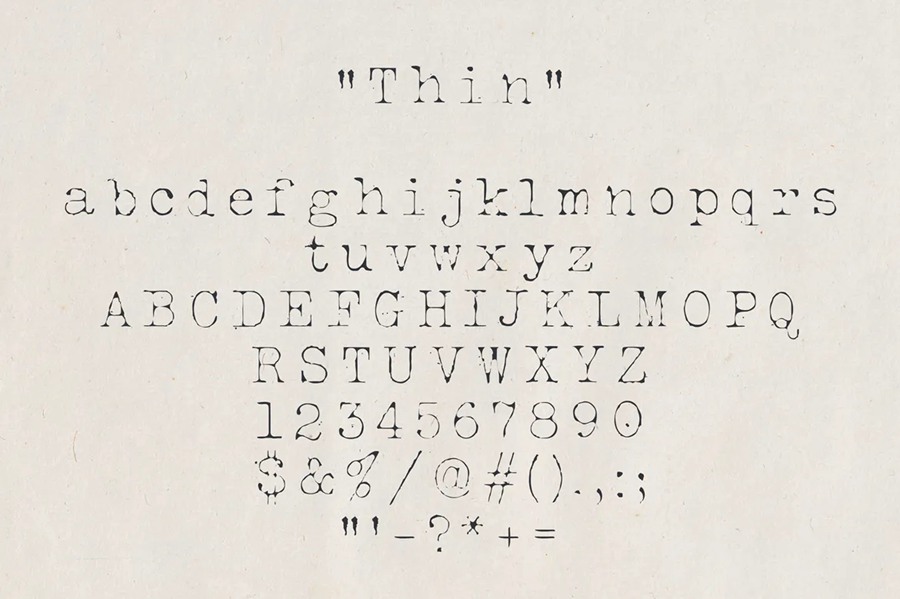 "Thin"
abcdefghijklmnopqrs
tuvwxyz
ABCDEFGHIJKLMOPQ
RSTUVWXYZ
1234567890
$&%/@#().,:;
"'-?*+=